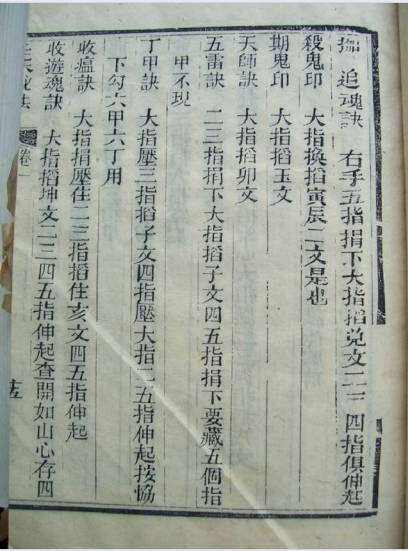 追魂訣 右手五指捐下大指搯兌文一二三四指俱伸起
殺鬼印 大指換搯寅辰二文是也
期鬼印 大指搯玉文
天師訣 大指搯卯文
五雷訣 二三指捐下大指搯子文四五指捐下要藏五個指
甲不現
丁甲訣 大指壓三指搯子文四指壓大指二五指伸起按脇
下勾六甲六丁用
收瘟訣 大指捐壓住二三指搯住亥文四五指伸起
收遊魂訣 大指搯坤文二三四五指伸起查開如山心存四
卷一